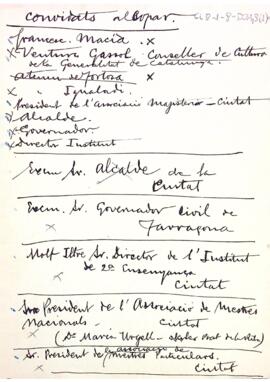 convidats al Sopar.
Francesc. Macià. x
x Ventura Gassol Conseller de Cultura
de la Generalitat de Catalunya.
Ateneu de Tortosa x
x " Igualadí.
President de l'Associació Magisterio - Ciutat
x Alcalde.
x Governador.
x Director Institut
Excm Sr. Alcalde de la
Ciutat
Excm. Sr. Governador Civil de
Tarragona
x
Molt Iltre Sr. Director de l'Institut
de 2ª Ensenyança
x Ciutat
President de l'Associació de Mestres
Nacionals - Ciutat
x (Dr Maria Urgell -
Sr. President de Mestres Particulars.
x Ciutat